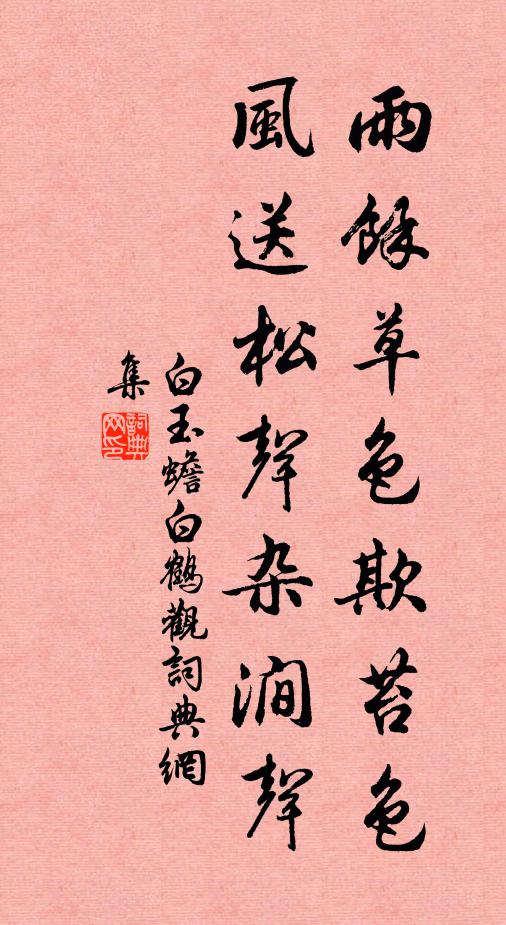 雨餘草色欺苔色
風送松聲杂澗聲
白玉蟾白鶴觀詞典網
集
詞典
网印